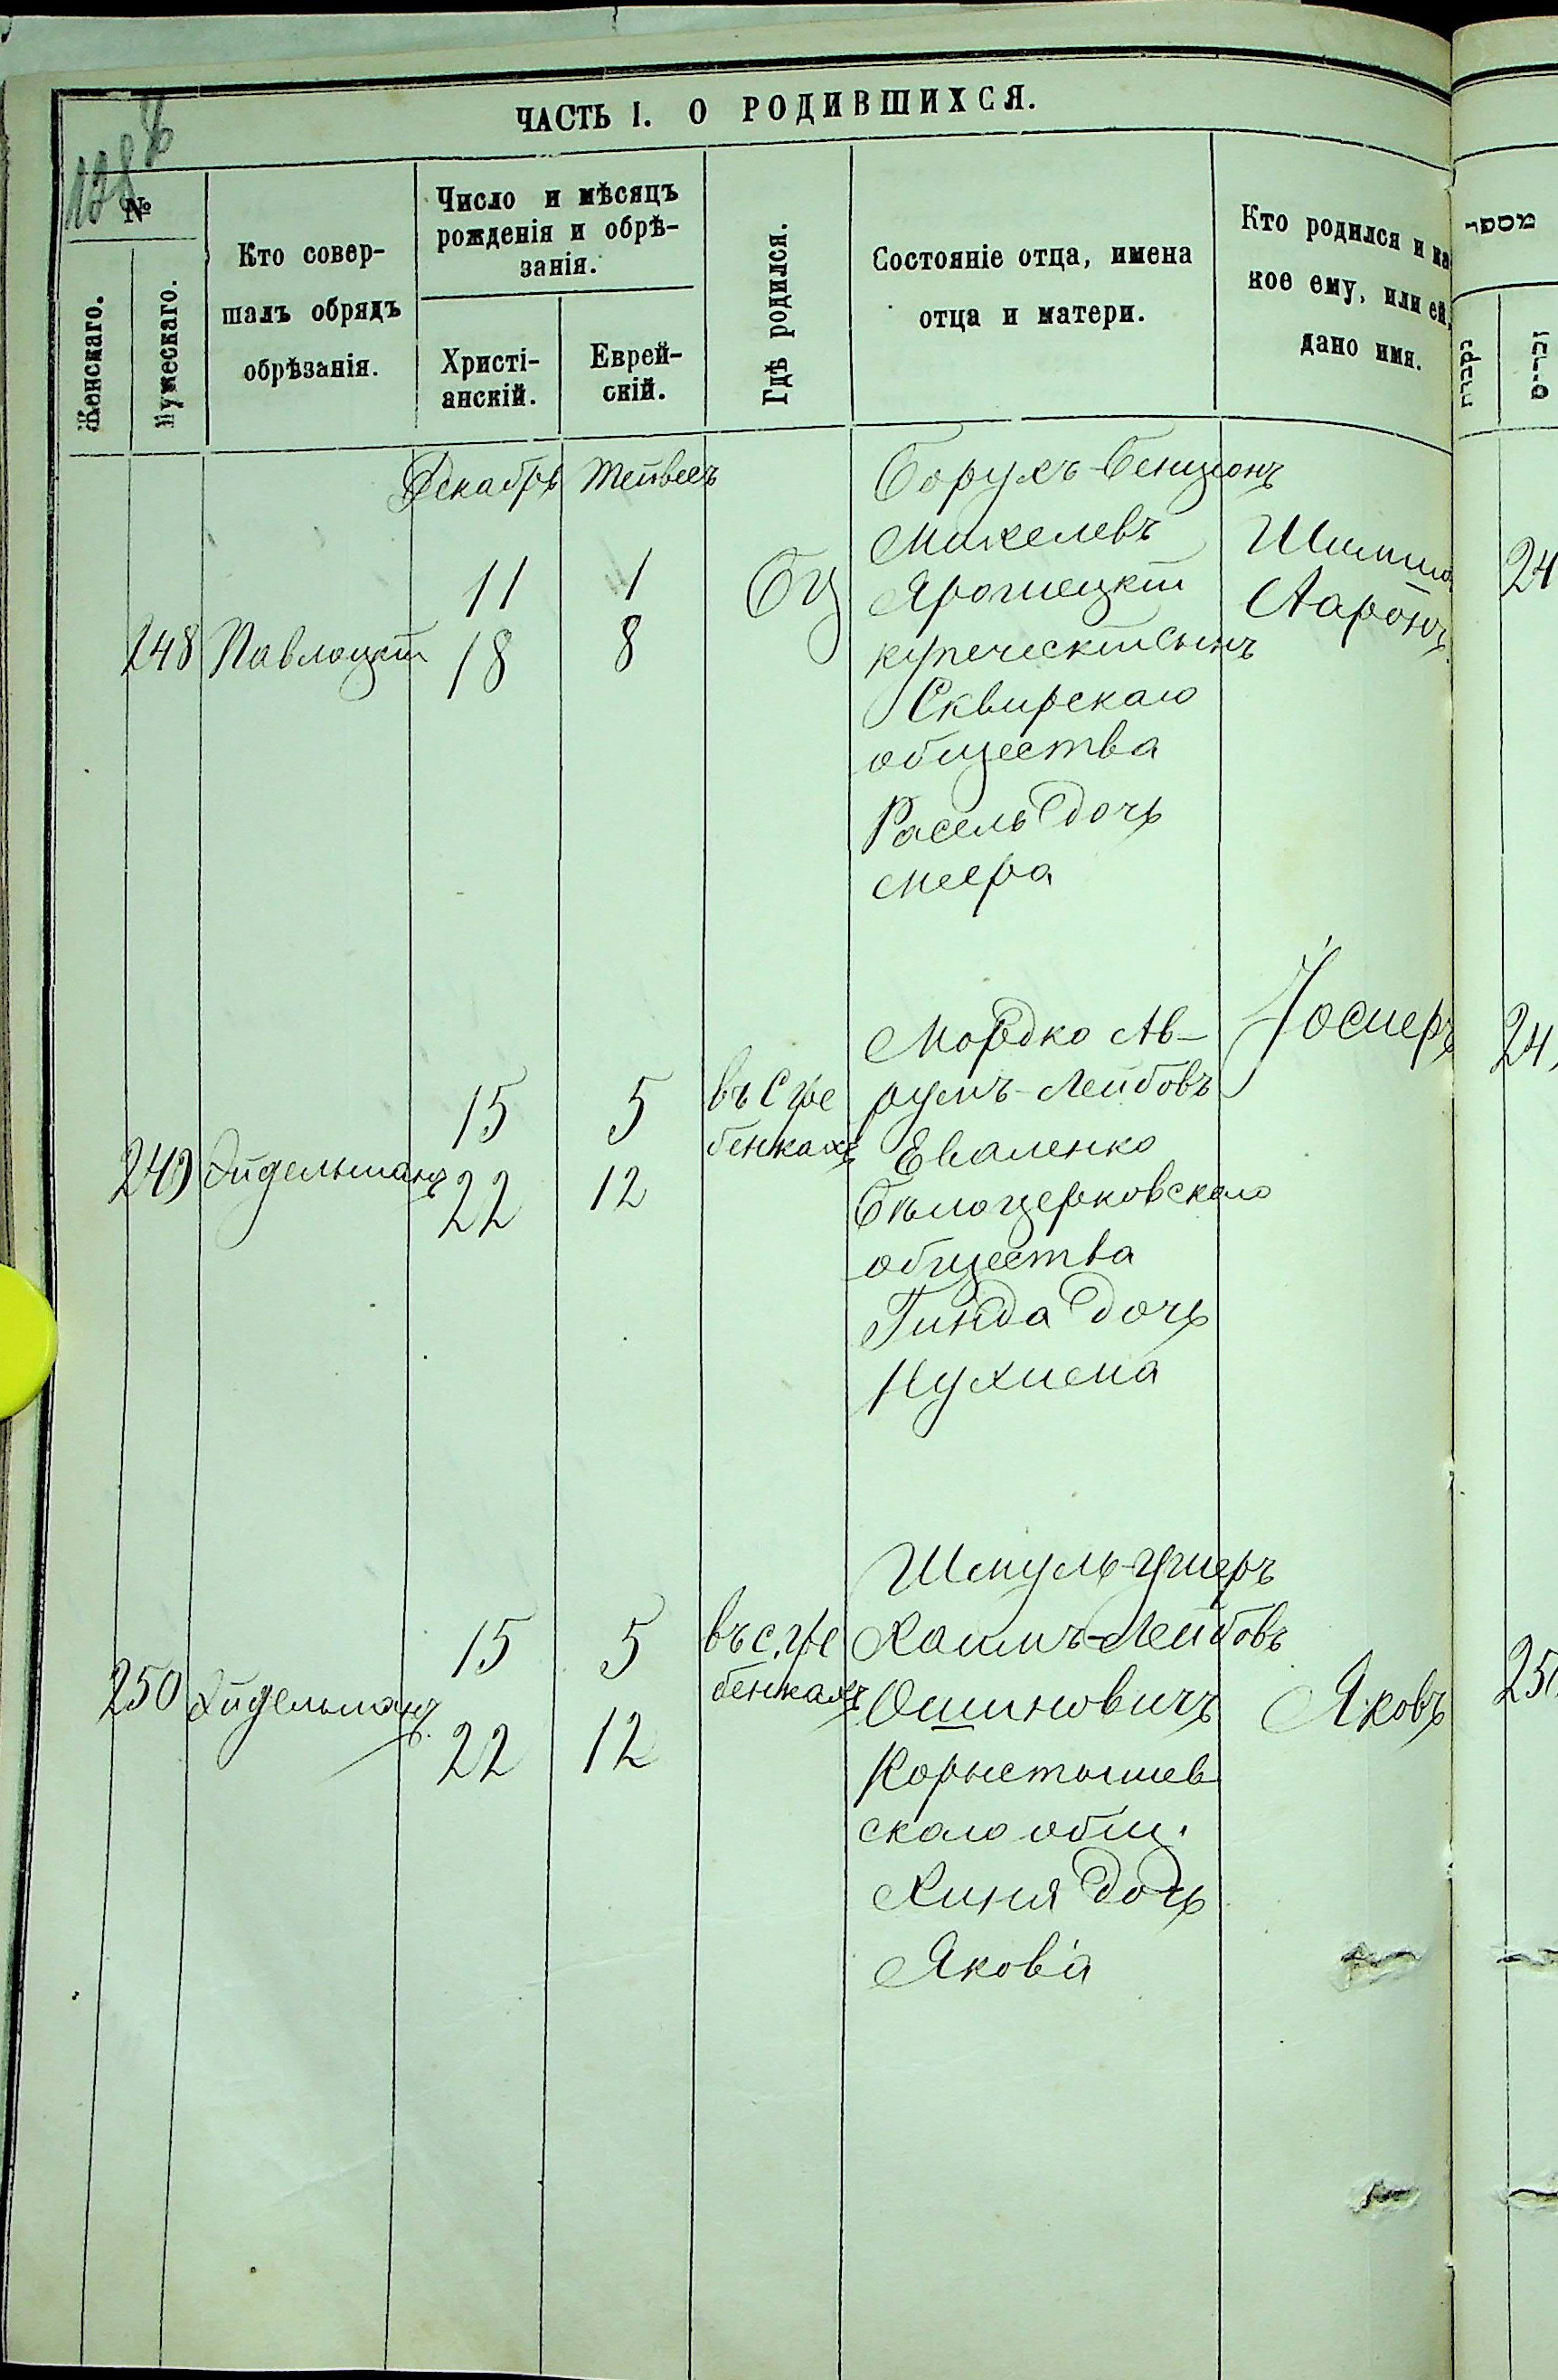 ЧАСТЬ I. О РОДИВШИХСЯ.
128
№
Женскаго.
Мужескаго.
Кто совер-
шалъ обрядъ
обрѣзанія.
Число и мѣсяцъ
рожденія и обрѣ-
занія.
Христі-
анскій.
Еврей-
скій.
Гдѣ родился.
Состояніе отца, имена
отца и матери.
Кто родился и ка
кое ему, или ей,
дано имя.
מספר
נקבות
זכרים
Декабрь Тейвесъ
248 Павлоцкій
11 1
18 8
БЦ
Борухъ-Бенционъ
Михелевъ
Ярогнецкій
купеческій сынъ
Сквирскаго
общества
Расель дочь
Меера
Ааронъ
24
249 Эйдельманъ
15 5
22 12
въ с Гре
бенкахъ
Мордко Ав-
румъ-Лейбовъ
Еваленко
Бѣлоцерковскаго
общества
Гинда дочь
Нухима
Іосиеръ
24
250 Эйдельманъ
15 5
22 12
въ с. Гре
бенкахъ
Шмуль-Ушеръ
Хаимъ-Лейбовъ
Ошиновичъ
Коростышев
скаго общ.
Хиня дочь
Якова
Яковъ
25